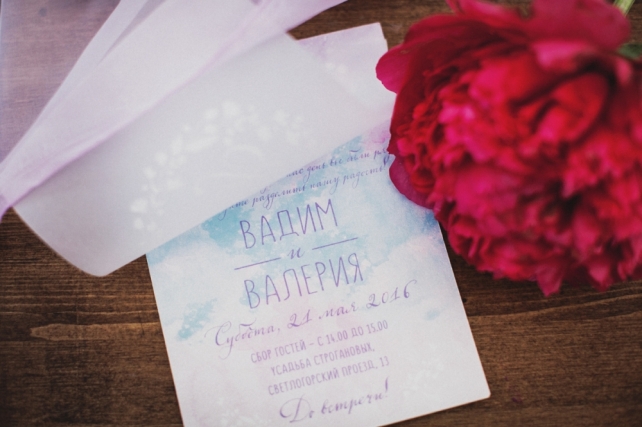 день
разделить нашу радость
ВАДИМ
и
ВАЛЕРИЯ
Суббота, 21 мая 2016
СБОР ГОСТЕЙ – С 14.00 ДО 15.00
УСАДЬБА СТРОГАНОВЫХ,
СВЕТЛОГОРСКИЙ ПРОЕЗД, 13
До встречи!